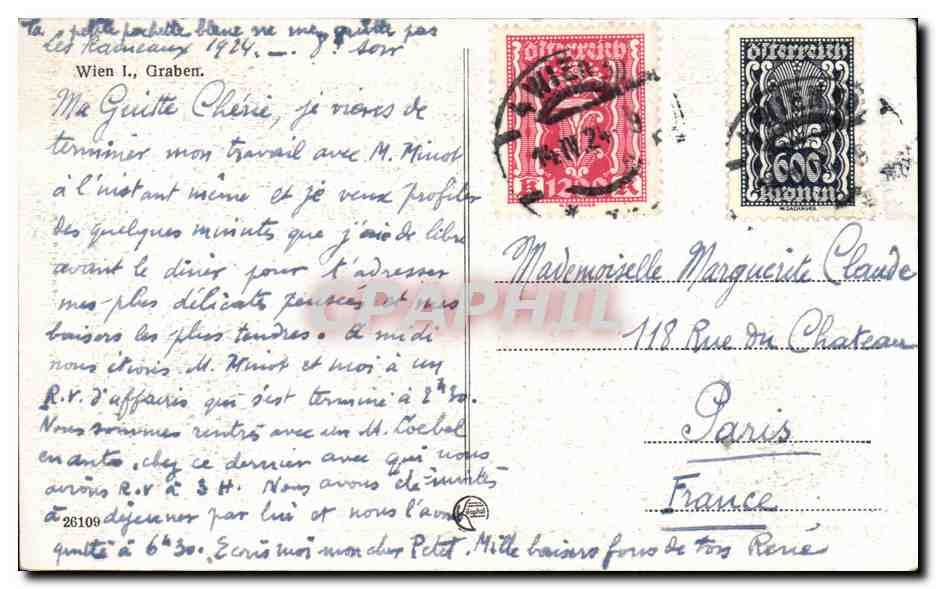 Ta petite pochette bleue ne me quitte pas
Les Rameaux 1924. — 8h soir
Wien I., Graben.
Ma Guitte Chérie, je viens de
terminer mon travail avec M. Minot
à l'instant même et je veux profiter
des quelques minutes que j'aie de libre
avant le dîner pour t'adresser
mes plus délicates pensées et mes
baisers les plus tendres. A midi
nous étions M. Minot et moi à un
R.V. d'affaires qui s'est terminé à 2h30.
Nous sommes rentrés avec un M. Loebel
en auto, chez ce dernier avec qui nous
avions R.V à 3 H. Nous avons été invités
à déjeuner par lui et nous l'avons
26109
quitté à 6h30. Ecris moi mon cher Petet. Mille baisers fous de ton René
Österreich
K 1200 K
WIEN
14.IV.24
Österreich
600
Kronen
Mademoiselle Marguerite Claude
118 Rue du Chateau
Paris
France
CPAPHIL